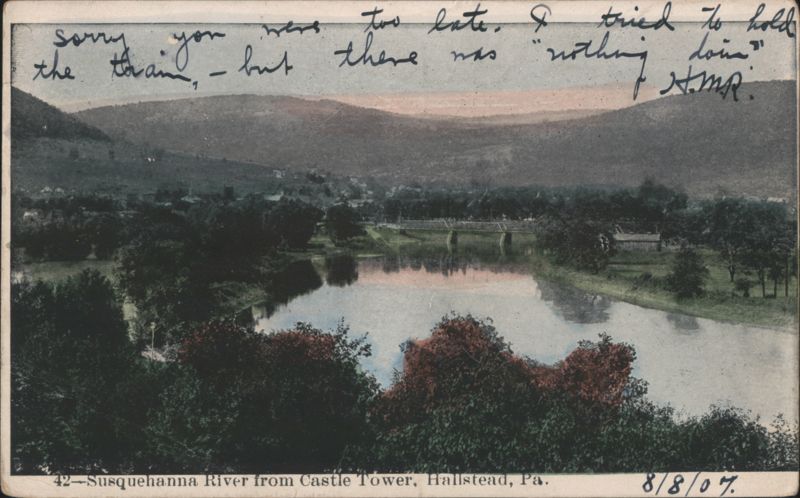 sorry you were too late. I tried to hold
the train, - but there was "nothing doin"
H.M.R.
42—Susquehanna River from Castle Tower, Hallstead, Pa.
8/8/07.